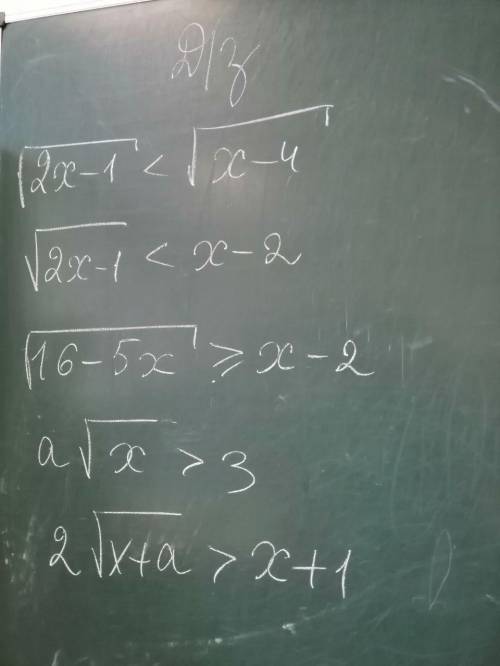 Д/з
√(2x-1) < √(x-4)
√(2x-1) < x-2
√(16-5x) ≥ x-2
a√x > 3
2√(x+a) > x+1